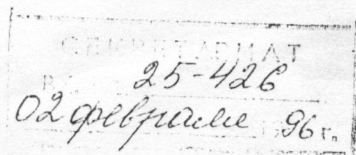 СЕКРЕТАРИАТ
25-426
02 февраля 96 г.